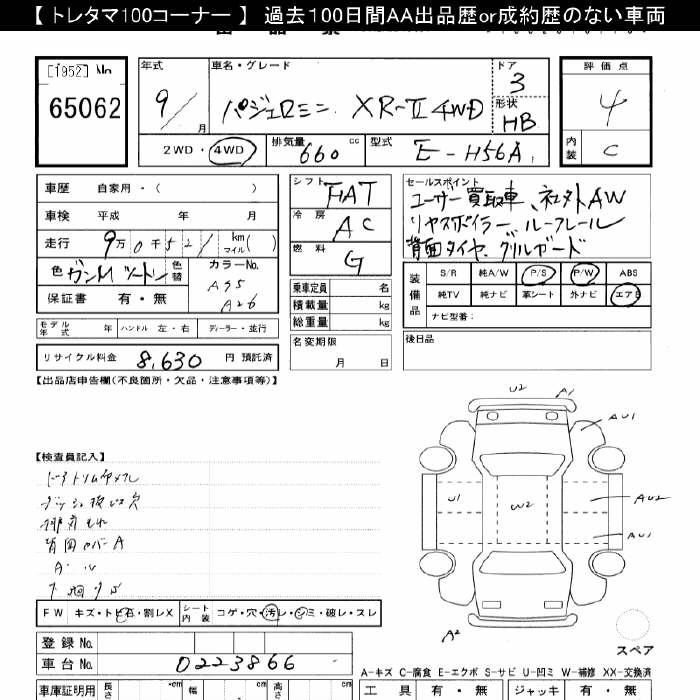 【 トレタマ100コーナー 】 過去100日間AA出品歴or成約歴のない車両
[1952] No
65062
年式 車名・グレード ドア 評価点
9/ 月 パジェロミニ XR-Ⅱ 4WD 3 4
形状 HB
2WD・4WD 排気量 660 cc 型式 E-H56A 内装 C
車歴 自家用・( )
車検 平成 年 月
走行 9万0千521 km マイル ( )
色 ガンM ツートン 色替 カラーNo. A95 A26
保証書 有・無
モデル年式 年 ハンドル 左・右 ディーラー・並行
リサイクル料金 8,630 円 預託済
シフト FAT
冷房 AC
燃料 G
乗車定員 名
積載量 kg
総重量 kg
名変期限 月 日
セールスポイント
ユーザー買取車、社外AW
リヤスポイラー、ルーフレール
背面タイヤ、グリルガード
装備品 S/R 純A/W P/S P/W ABS
純TV 純ナビ 革シート 外ナビ エアB
ナビ型番:
後日品
【出品店申告欄(不良箇所・欠品・注意事項等)】
【検査員記入】
背面カバーA
A・U
下回りサビ
U2 A1
AU1
U1 W2 AU2
AU1
A2
スペア
FW キズ・トビ石・割レX シート内装 コゲ・穴・汚レ・シミ・破レ・スレ
登録 No.
車台 No. 0223866
A-キズ C-腐食 E-エクボ S-サビ U-凹ミ W-補修 XX-交換済
車庫証明用 長さ cm 幅 cm 高さ cm 工具 有・無 ジャッキ 有・無